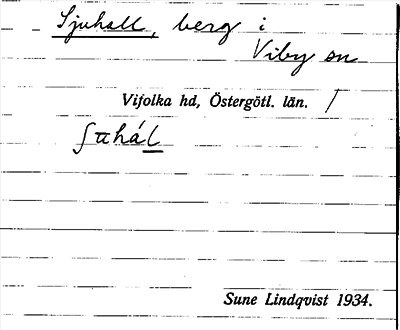 Sjuhall, berg i
Viby sn
Vifolka hd, Östergötl. län. /
Sune Lindqvist 1934.